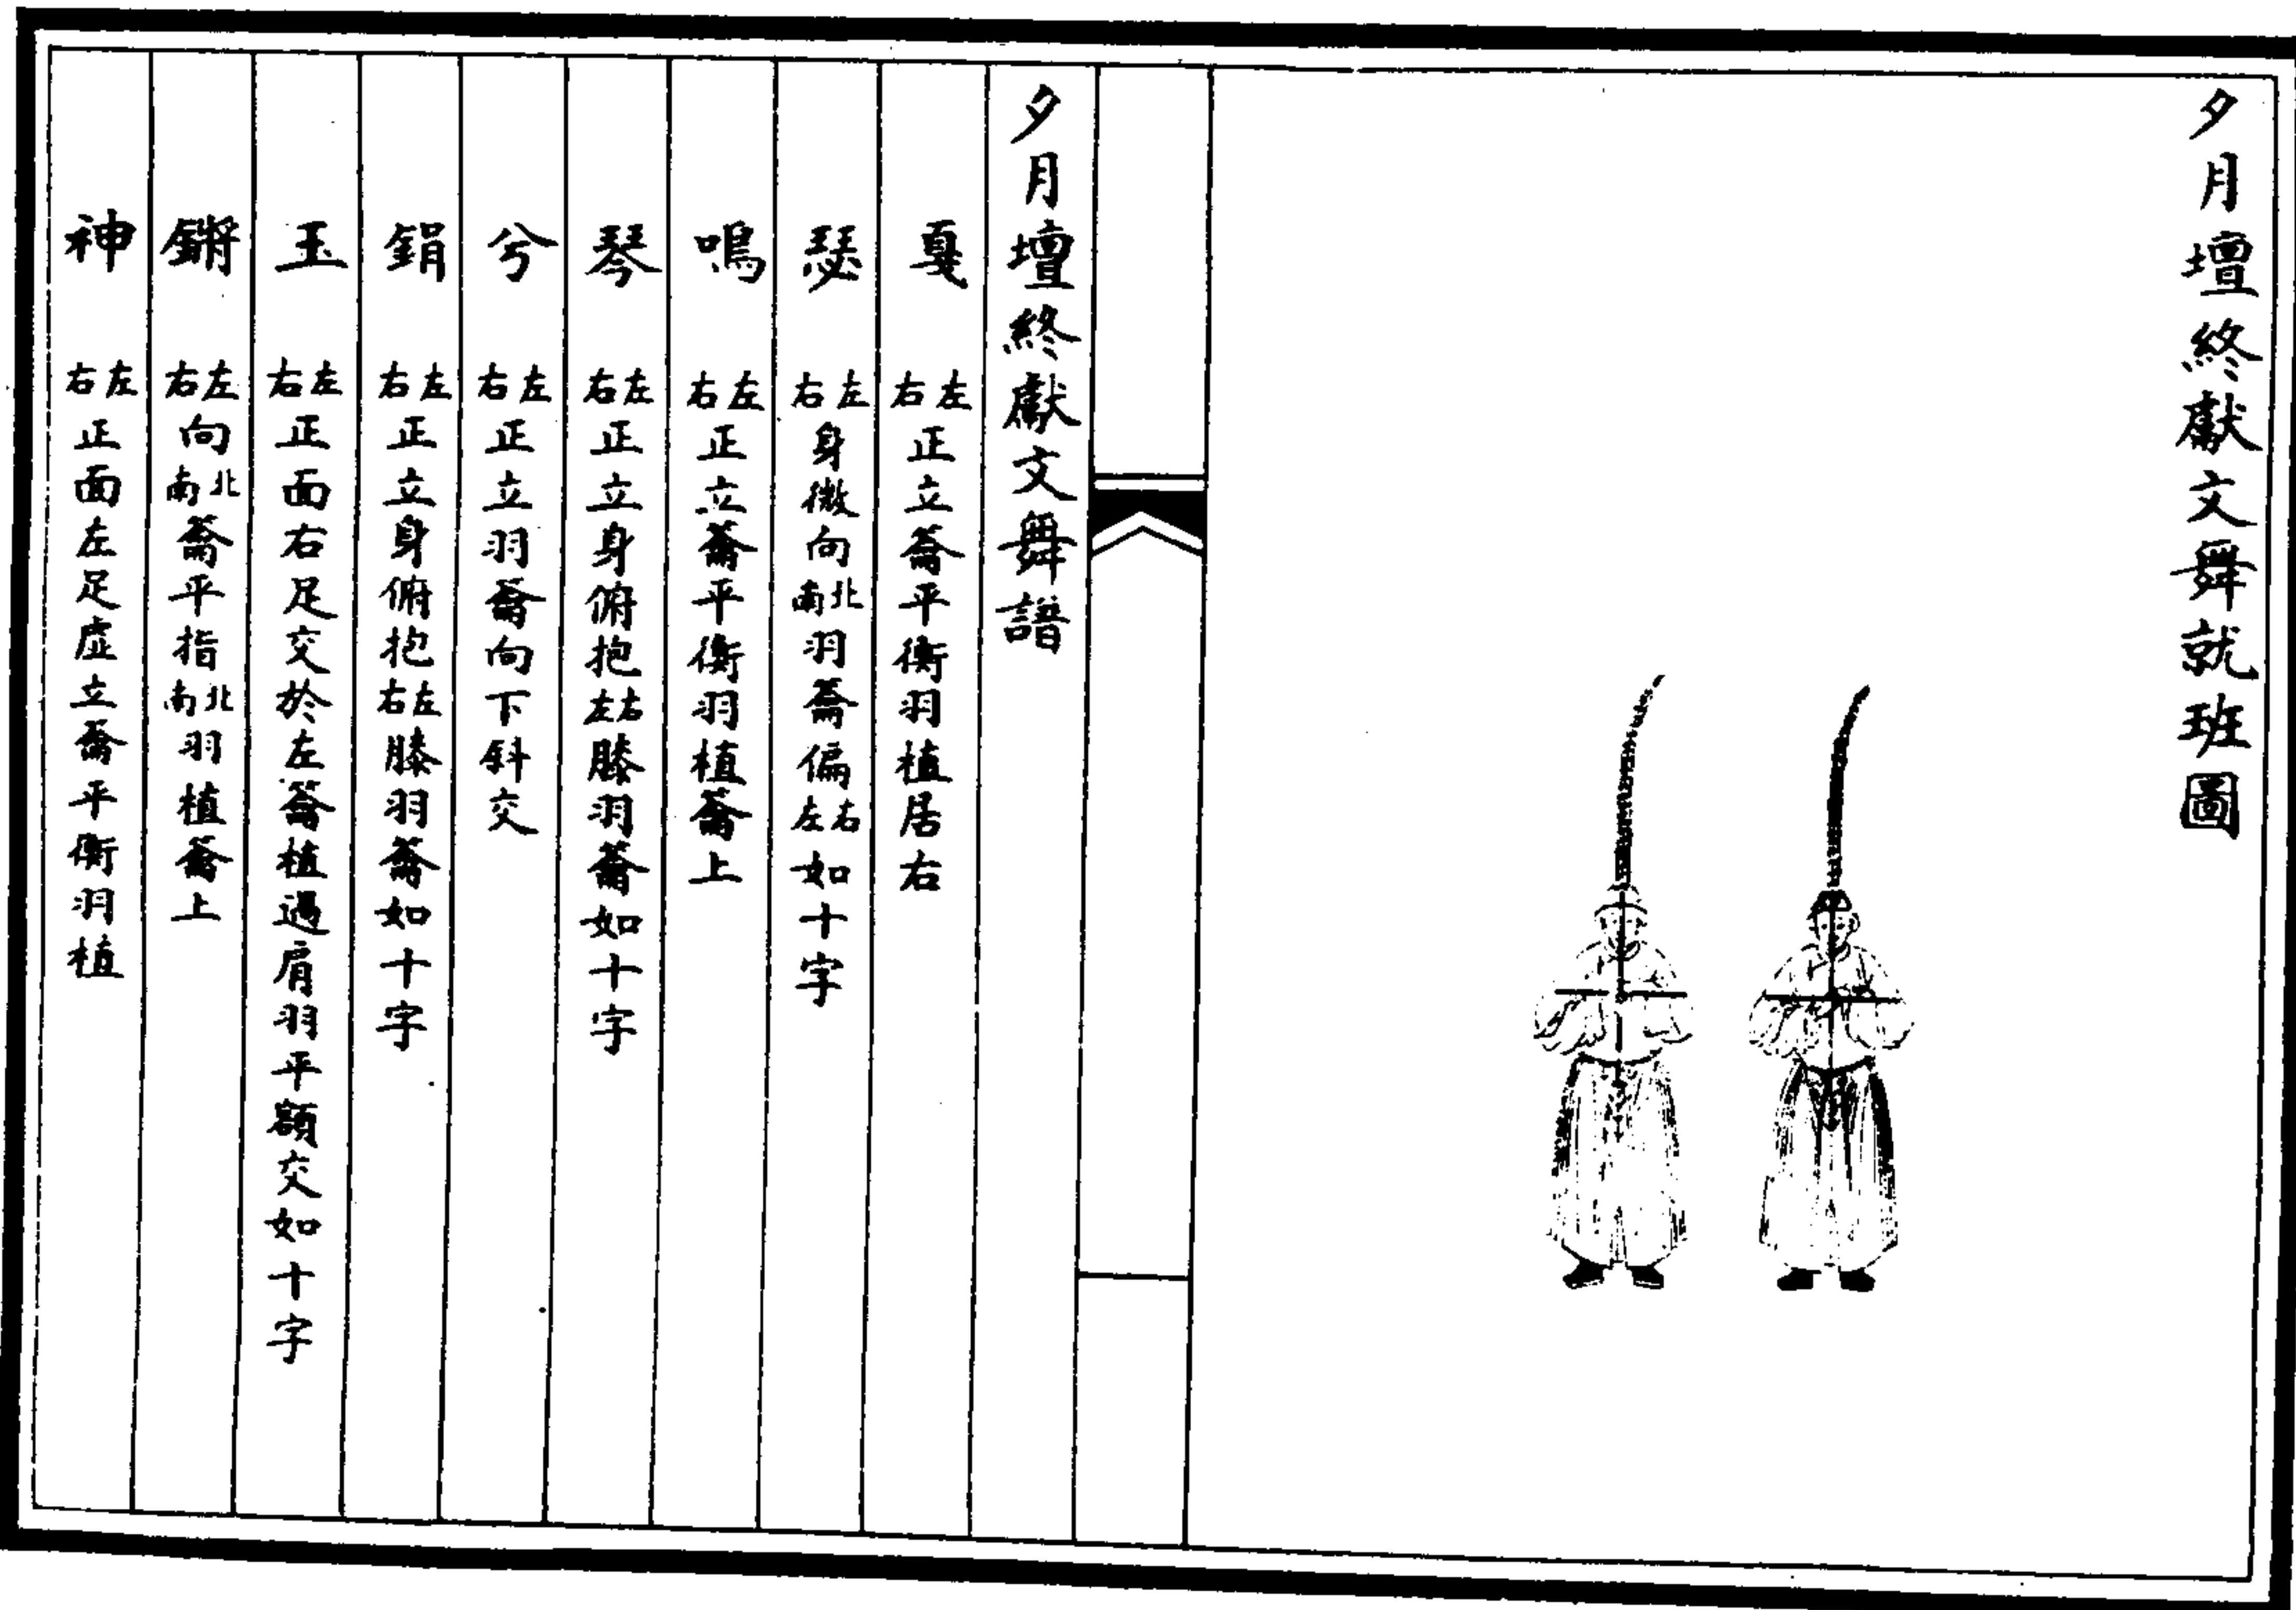 夕月壇終獻文舞就班圖
夕月壇終獻文舞譜
戛 左右正立籥平衡羽植居右
瑟 左右身微向北南羽籥偏右左如十字
鳴 左右正立籥平衡羽植籥上
琴 左右正立身俯抱右左膝羽籥如十字
兮 左右正立羽籥向下斜交
鋗 左右正立身俯抱左右膝羽籥如十字
玉 左右正面右足交於左籥植過肩羽平額交如十字
鏘 左右向北南籥平指北南羽植籥上
神 左右正面左足虛立籥平衡羽植